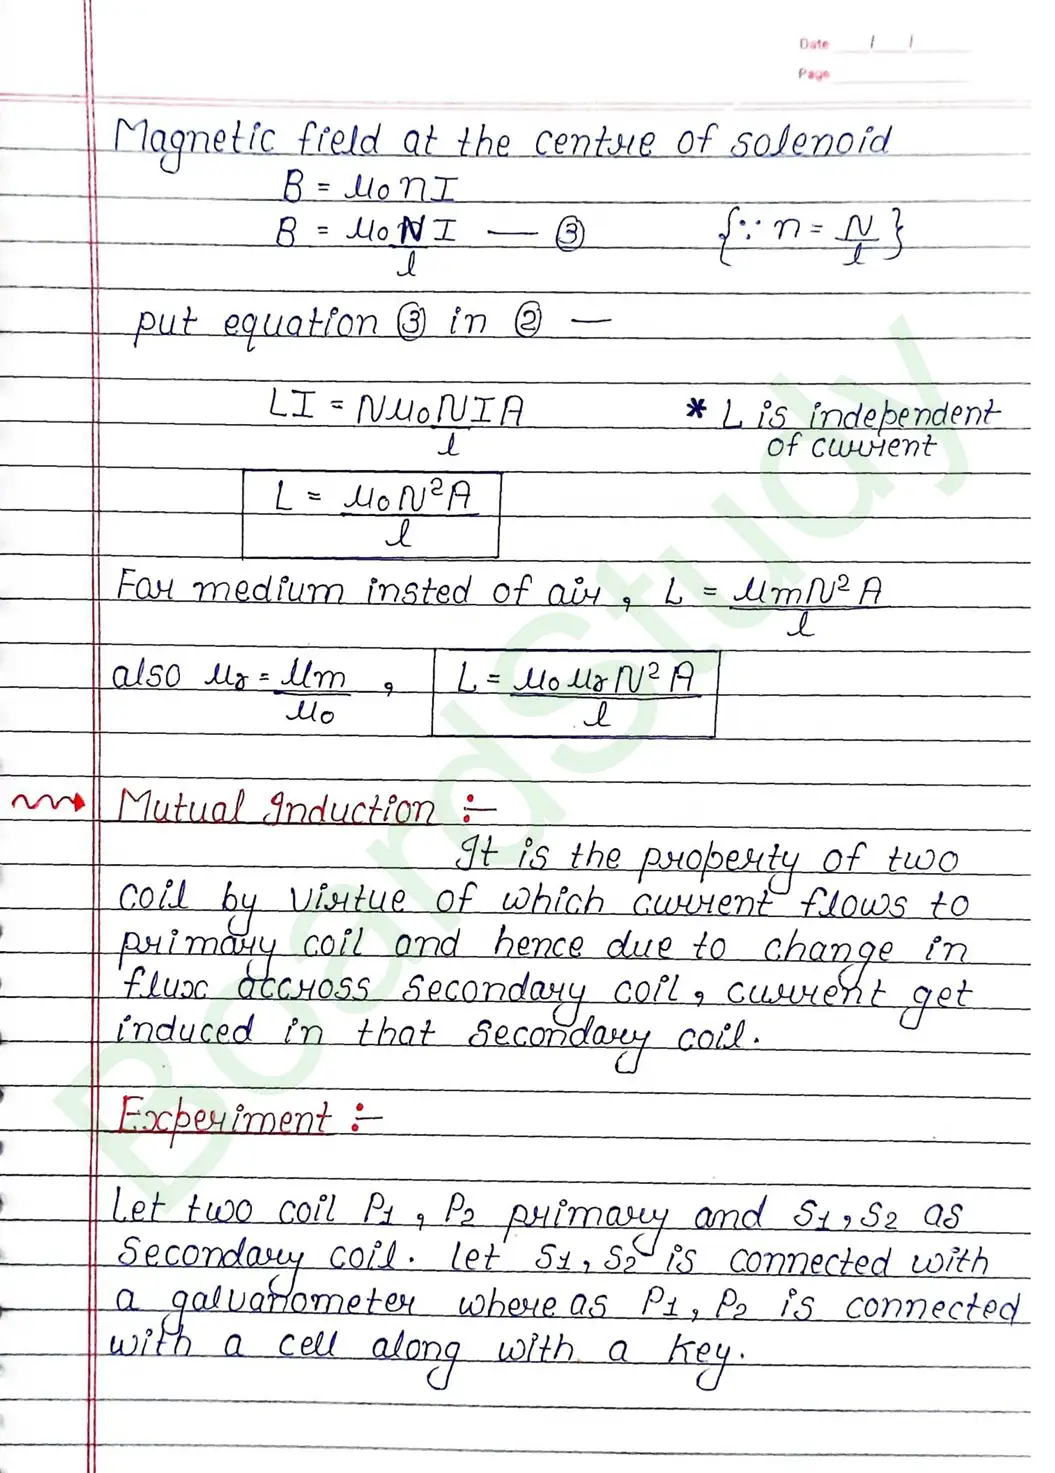 Date / /
Page
Magnetic field at the centre of solenoid
B = μ0nI
B = μ0NI/l — ③ {∵ n = N/l}
put equation ③ in ② —
LI = Nμ0NIA/l * L is independent
of current
L = μ0N²A/l
For medium insted of air, L = μmN²A/l
also μr = μm/μ0 , L = μ0μrN²A/l
Mutual Induction :-
It is the property of two
coil by virtue of which current flows to
primary coil and hence due to change in
flux atcross secondary coil, current get
induced in that secondary coil.
Experiment :-
Let two coil P1, P2 primary and S1, S2 as
secondary coil. let S1, S2 is connected with
a galvanometer where as P1, P2 is connected
with a cell along with a key.
BoardStudy